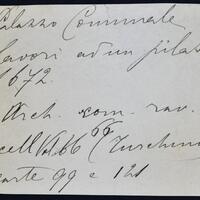 Palazzo Comunale
lavori ad un pilas
1672.
Arch. com. rav.
cell 66 (Turchini
carte 99 e 121